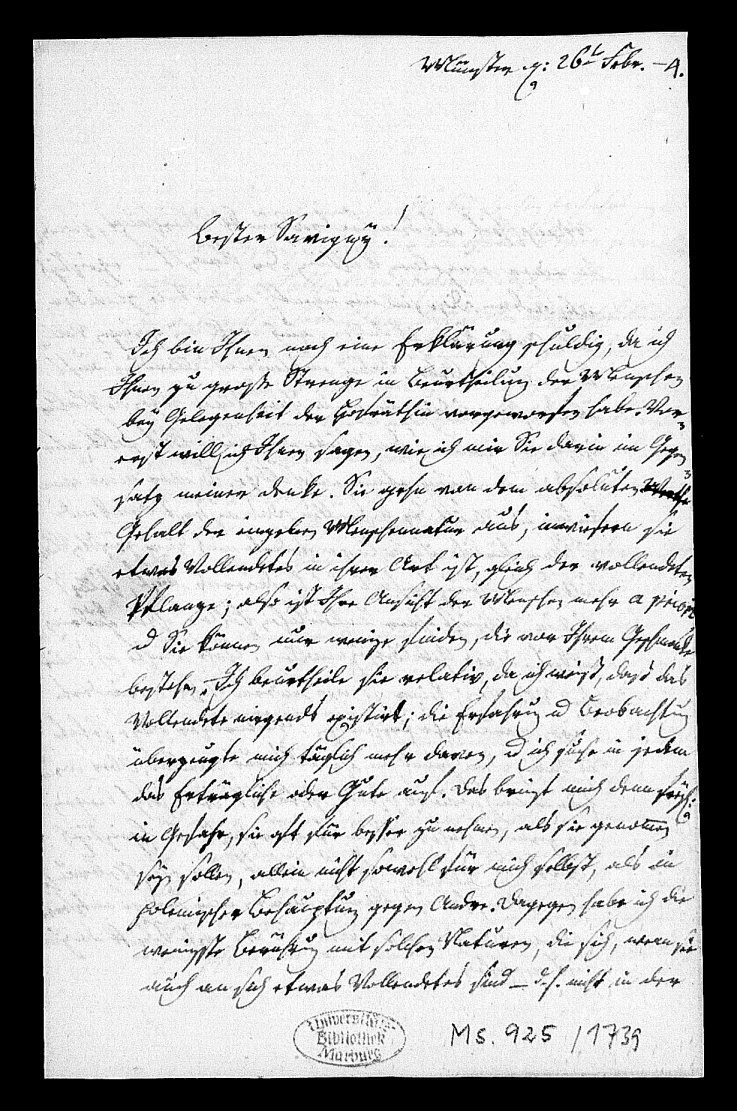 Münster d: 26t Febr. –4.
Bester Savigny!
Ich bin Ihnen noch eine Erklärung schuldig, da ich
Ihnen zu große Strenge in Beurtheilung der Menschen
bey Gelegenheit der vorgeworfen habe. Vor-
erst will ich Ihnen sagen, wie ich mir Sie darin im Gegen-
satz meiner denke. Sie gehn von dem absoluten
Gehalt der einzelnen Menschennatur aus, inwiefern sie
etwas Vollendetes in ihrer Art ist, gleich der vollendeten
Pflanze; also ist Ihre Ansicht der Menschen mehr a priori
d Sie können nur wenige finden, die vor Ihrem Geschmacke
bestehen. Ich beurtheile sie relativ, da ich weiß, daß das
Vollendete nirgends existirt; die Erfahrung d Beobachtung
überzeugte mich täglich mehr davon, d ich suche in jedem
das Erträgliche oder Gute auf. Das bringt mich denn freil:
in Gefahr, sie oft für besser zu nehmen, als sie genommen
seyn sollen, allein nicht sowohl für mich selbst, als in
polemischer Behauptung gegen Andre. Dagegen habe ich die
wenigste Berührung mit solchen Naturen, die sich, wenn sie
auch an sich etwas Vollendetes sind – d.h. nicht in der
Universitäts
Bibliothek
Marburg
Ms. 925 / 1739